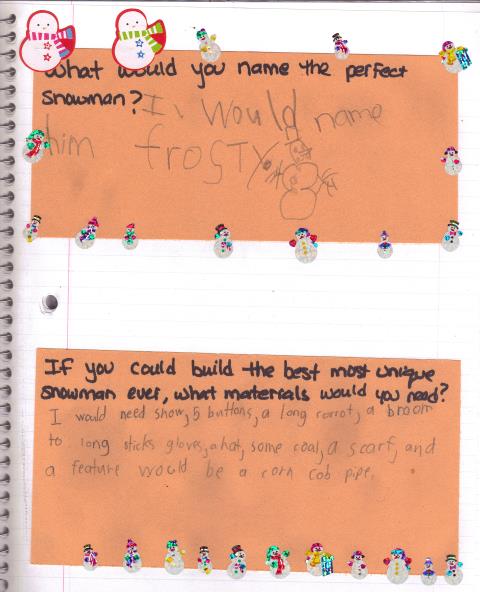 What would you name the perfect
Snowman? I would name
him frosty
If you could build the best most unique
snowman ever, what materials would you need?
I would need snow, 5 buttons, a long carrot, a broom
to long sticks gloves, a hat, some coal, a scarf, and
a feature would be a corn cob pipe.